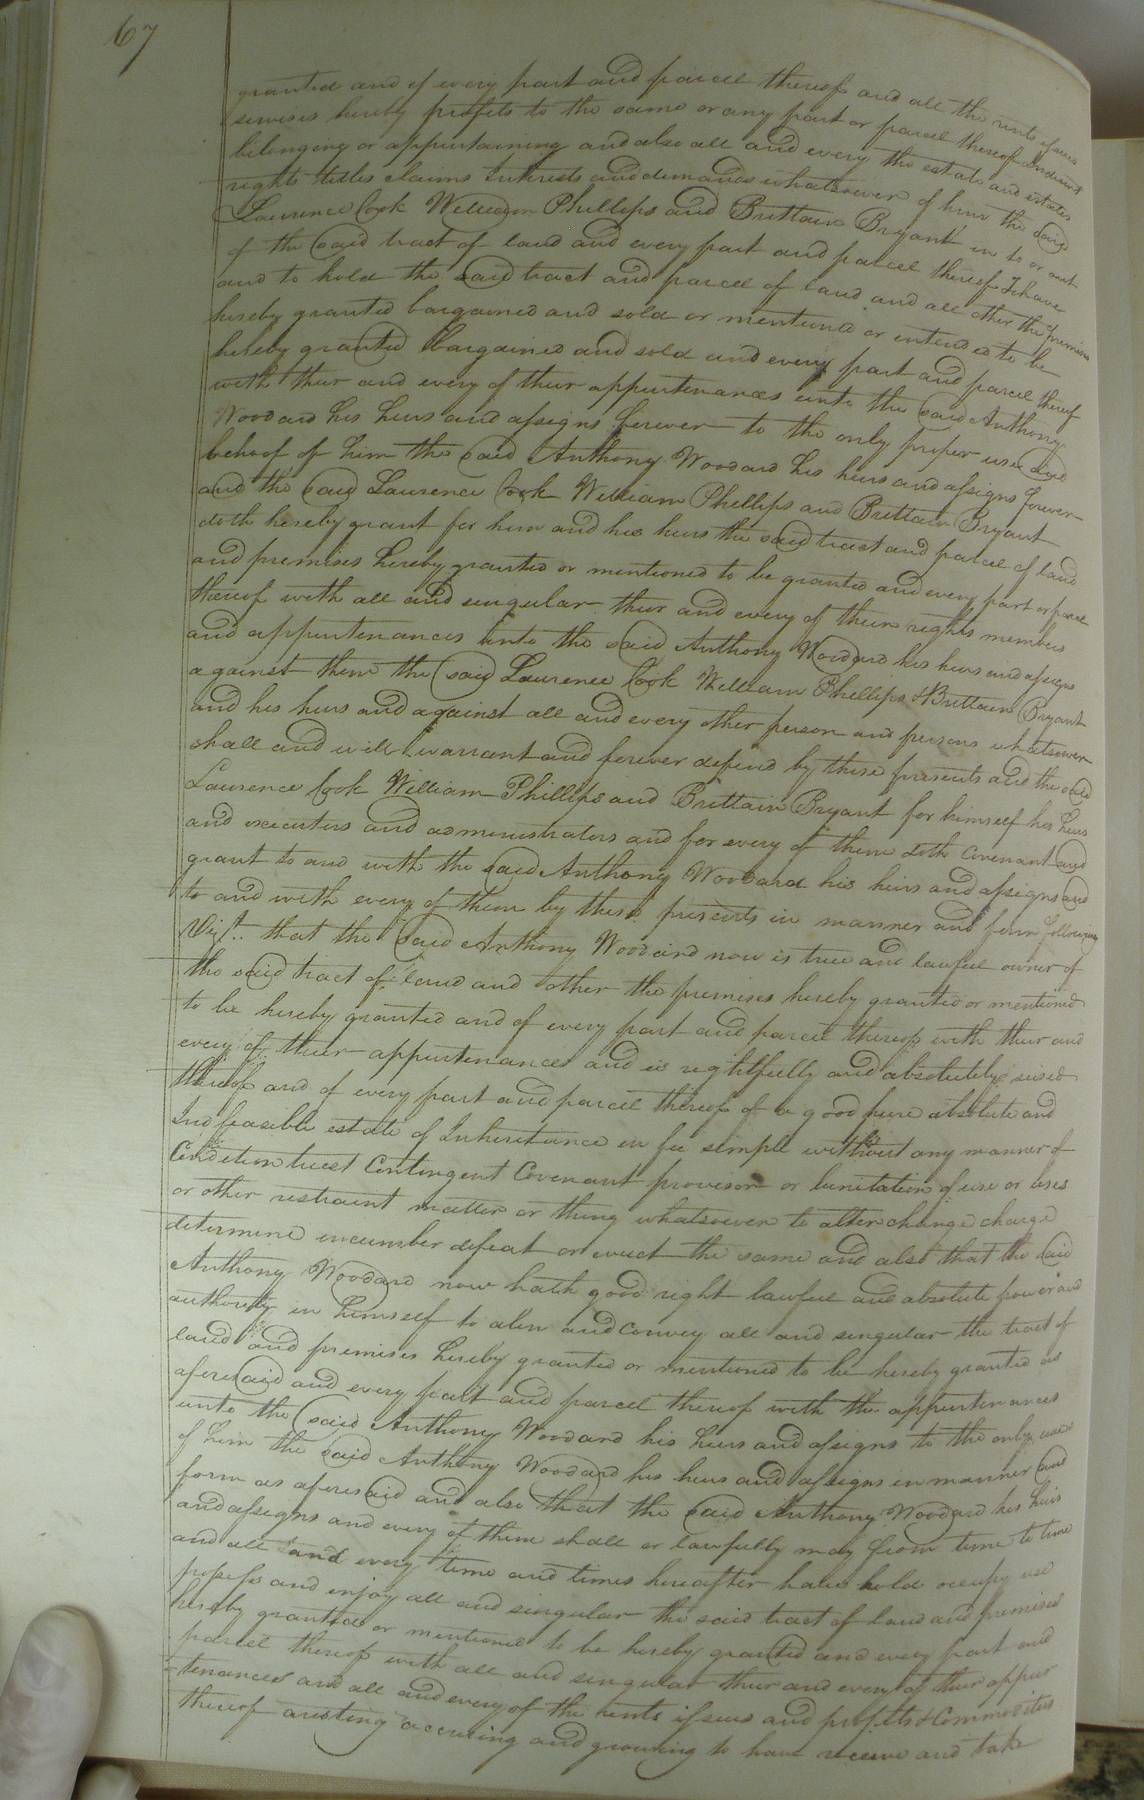 67
granted and of every part and parcel thereof and all the rents issues
servises hereby profits to the same or any part or parcel thereof
belonging or appurtaining and also all and every the estate and estates
rights titles claims Interests and demands whatsoever of him the said
Laurence Cook William Phillips and Brittain Bryant in to or out
of the said tract of land and every part and parcel thereof To have
and to hold the said tract and parcel of land and all other the premises
hereby granted bargained and sold or mentioned or intended to be
hereby granted bargained and sold and every part and parcel thereof
with thur and every of thur appurtenances unto the said Anthony
Woodard his heirs and assigns forever to the only proper use and
behoof of him the said Anthony Woodard his heirs and assigns forever
and the said Laurence Cook William Phillips and Brittain Bryant
doth hereby grant for him and his heirs the said tract and parcel of land
and premises hereby granted or mentioned to be granted and every part or parcel
thereof with all and singular thur and every of their rights members
and appurtenances unto the said Anthony Woodard his heirs and assigns
against them the said Laurence Cook William Phillips & Brittain Bryant
and his heirs and against all and every other person and persons whatsoever
shall and will warrant and forever defend by these presents and the said
Laurence Cook William Phillips and Brittain Bryant for himself his heirs
and executors and administrators and for every of them doth covenant and
grant to and with the said Anthony Woodard his heirs and assigns and
to and with every of them by these presents in manner and form following
Vizt. that the said Anthony Woodard now is true and lawful owner of
the said tract of land and other the premises hereby granted or mentioned
to be hereby granted and of every part and parcel thereof with thur and
every of thur appurtenances and is rightfully and absolutely seised
thereof and of every part and parcel thereof of a good pure absolute and
Indfeasible estate of Inheritance in fee simple without any manner of
Condition trust Contingent Covenant provisor or limitation of use or uses
or other restraint matter or thing whatsoever to alter change charge
determine encumber defeat or evict the same and also that the said
Anthony Woodard now hath good right lawful and absolute power and
authority in himself to alien and convey all and singular the tract of
land and premises hereby granted or mentioned to be hereby granted as
aforesaid and every part and parcel thereof with the appurtenances
unto the said Anthony Woodard his heirs and assigns to the only use
of him the said Anthony Woodard his heirs and assigns in manner and
form as aforesaid and also that the said Anthony Woodard his heirs
and assigns and every of them shall or lawfully may from time to time
and all and every time and times hereafter have hold occupy use
possess and enjoy all and singular the said tract of land and premises
hereby granted or mentioned to be hereby granted and every part and
parcel thereof with all and singular thur and every of thur appur
tenances and all and every of the rents issues and profits & Commodities
thereof arising accruing and growing to have receive and take